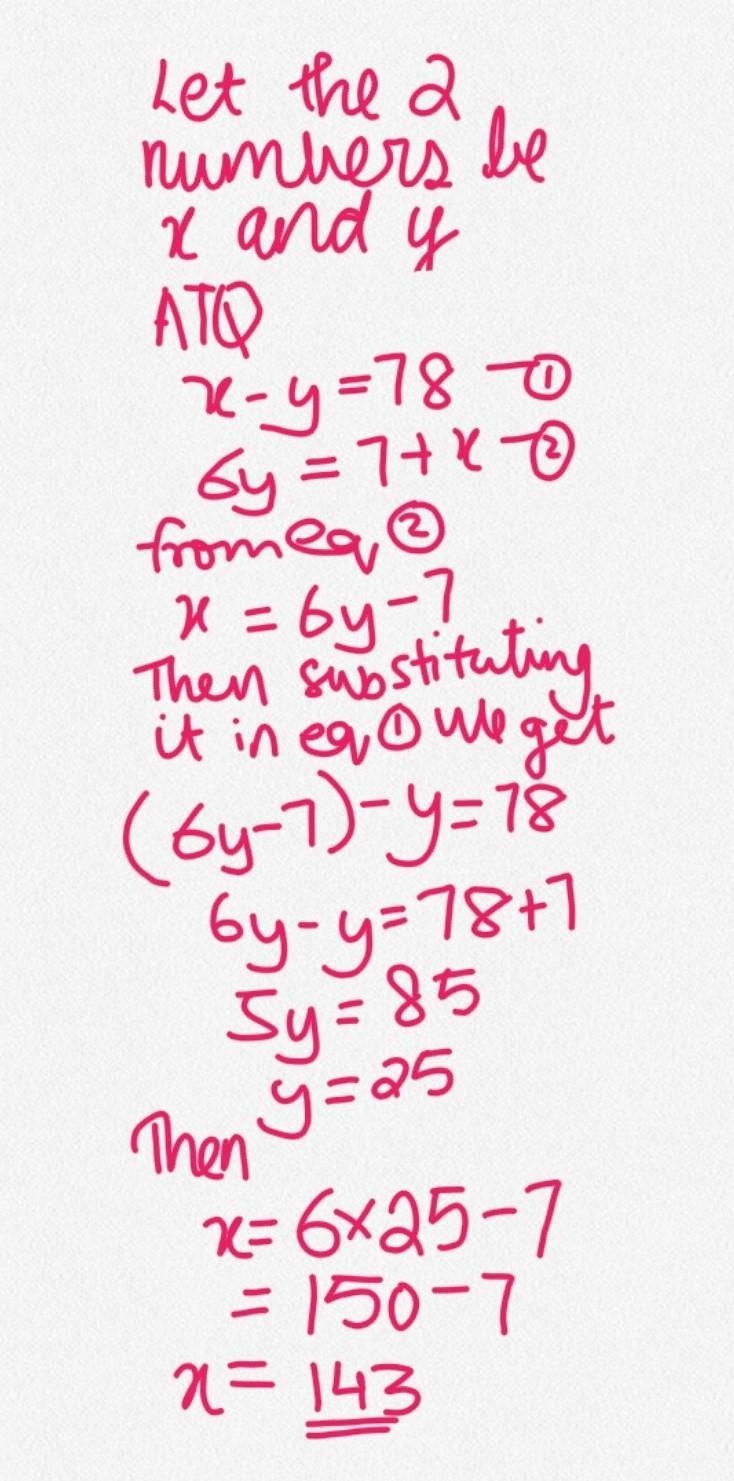 Let the 2
numbers be
x and y
ATQ
x-y=78 -①
6y = 7+x -②
from eq ②
x = 6y-7
Then substituting
it in eq ① we get
(6y-7)-y=78
6y-y=78+7
5y= 85
y=25
Then
x= 6×25-7
= 150-7
x= 143